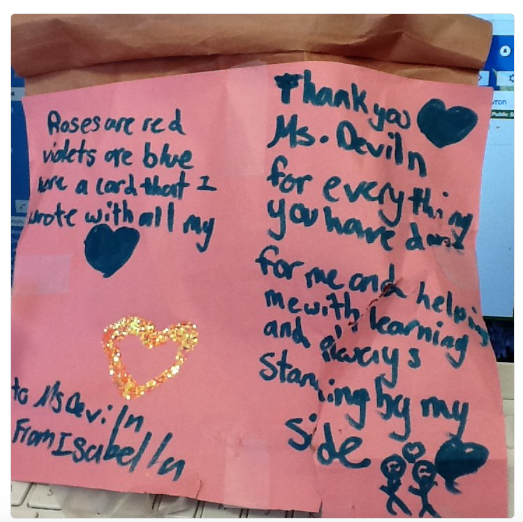 Roses are red
violets are blue
are a card that I
wrote with all my
to Ms Deviln
From Isabelln
Thank you
Ms. Deviln
for everything
you have done
for me and helping
me with learning
and always
standing by my
side